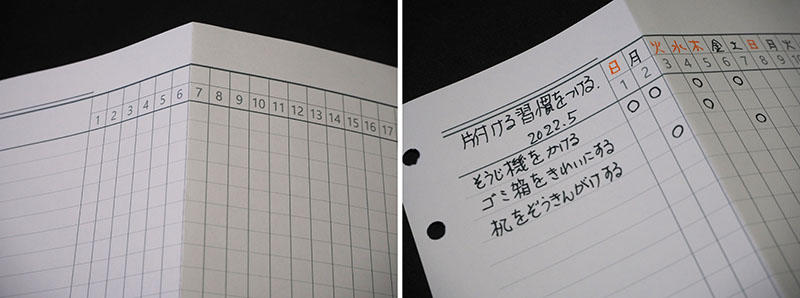 1 2 3 4 5 6 7 8 9 10 11 12 13 14 15 16 17
日 月 火 水 木 金 土 日 月 火
1 2 3 4 5 6 7 8 9 10
片付ける習慣をつける.
2022.5
そうじ機をかける
ゴミ箱をきれいにする
机をぞうきんがけする